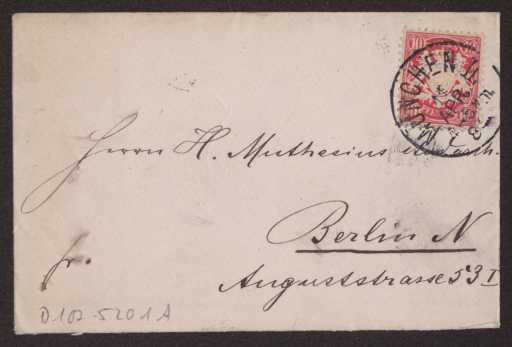 10
MÜNCHEN II.
APR
Herrn H. Muthesius
Berlin N
fr.
Auguststrasse 53 I
D 102-5201 A